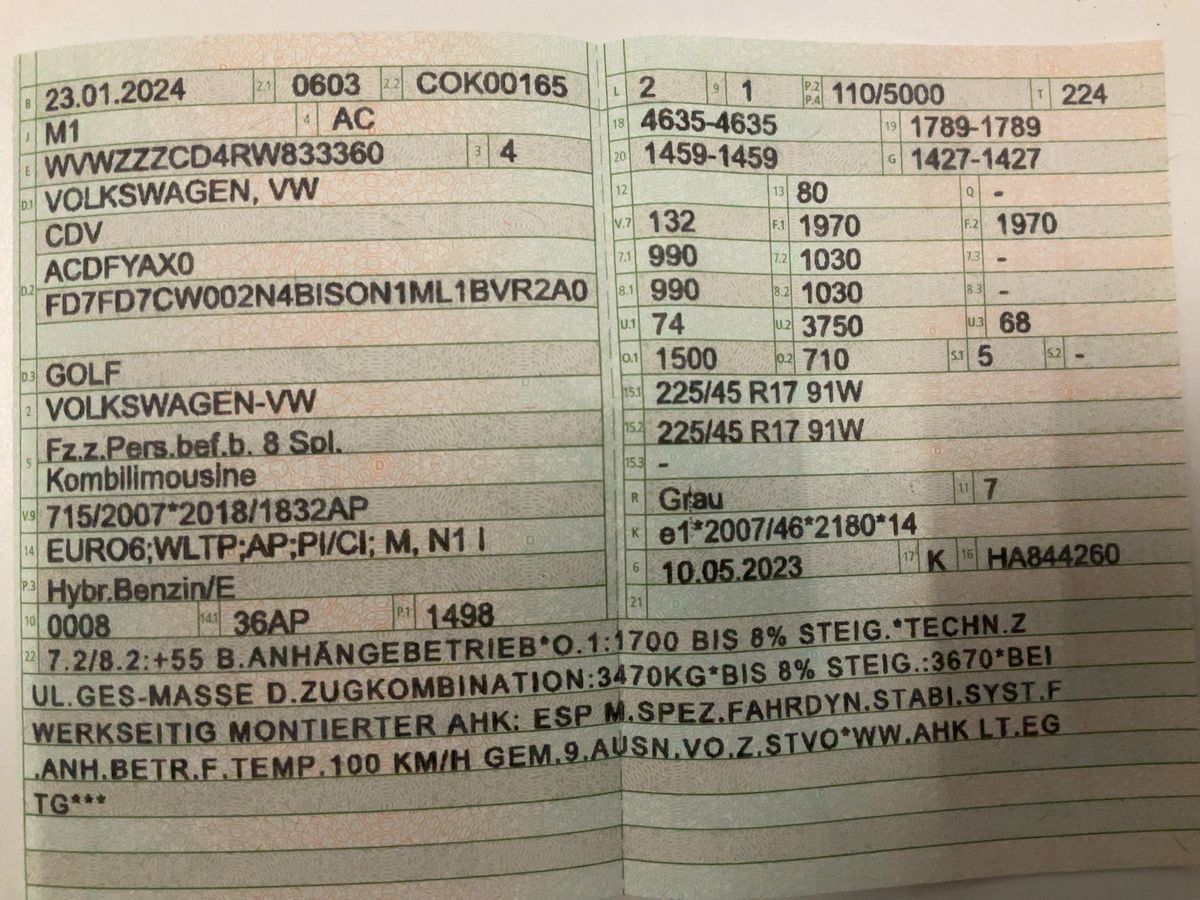 B 23.01.2024 2.1 0603 2.2 COK00165
J M1 4 AC
E WVWZZZCD4RW833360 3 4
D.1 VOLKSWAGEN, VW
CDV
ACDFYAX0
D.2 FD7FD7CW002N4BISON1ML1BVR2A0
D.3 GOLF
2 VOLKSWAGEN-VW
5 Fz.z.Pers.bef.b. 8 Sol.
Kombilimousine
V.9 715/2007*2018/1832AP
14 EURO6;WLTP;AP;PI/CI; M, N1 I
P.3 Hybr.Benzin/E
10 0008 14.1 36AP P.1 1498
L 2 9 1 P.2 P.4 110/5000 T 224
18 4635-4635 19 1789-1789
20 1459-1459 G 1427-1427
12 13 80 Q -
V.7 132 F.1 1970 F.2 1970
7.1 990 7.2 1030 7.3 -
8.1 990 8.2 1030 8.3 -
U.1 74 U.2 3750 U.3 68
O.1 1500 O.2 710 S.1 5 S.2 -
15.1 225/45 R17 91W
15.2 225/45 R17 91W
15.3 -
R Grau 11 7
K e1*2007/46*2180*14
6 10.05.2023 17 K 16 HA844260
21
22 7.2/8.2:+55 B.ANHÄNGEBETRIEB*O.1:1700 BIS 8% STEIG.*TECHN.Z
UL.GES-MASSE D.ZUGKOMBINATION:3470KG*BIS 8% STEIG.:3670*BEI
WERKSEITIG MONTIERTER AHK: ESP M.SPEZ.FAHRDYN.STABI.SYST.F
.ANH.BETR.F.TEMP.100 KM/H GEM.9.AUSN.VO.Z.STVO*WW.AHK LT.EG
TG***